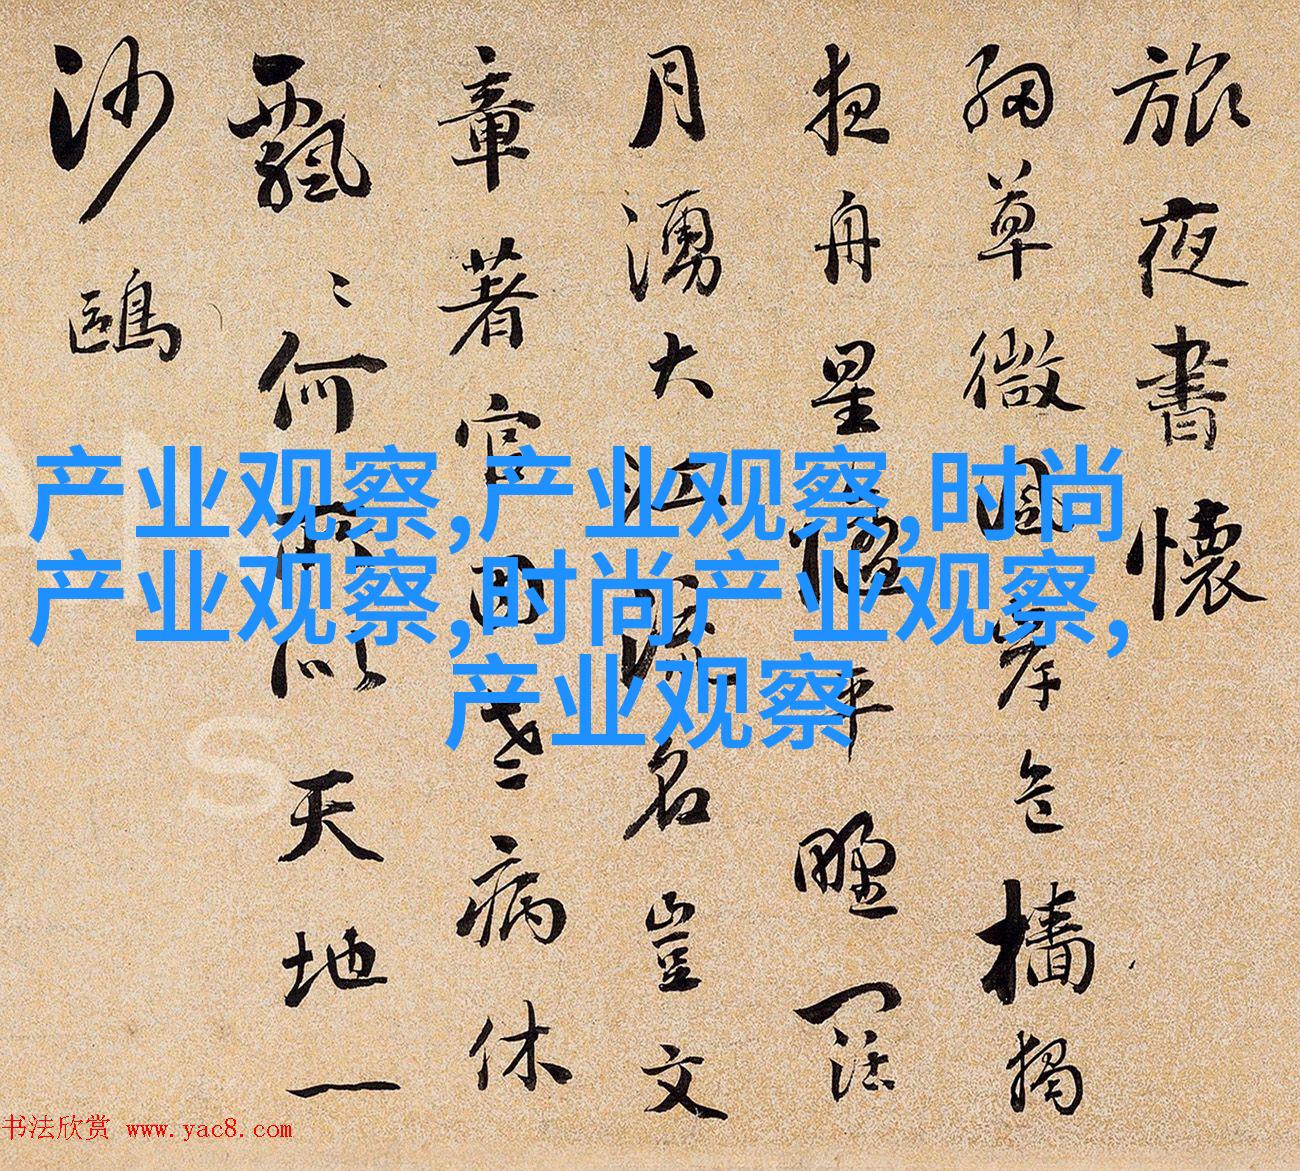 旅夜書懷
細草微風岸危檣獨
夜舟星平野闊
月湧大江流名豈文
章著官因老病休
飄〻何所以天地一
沙鷗
产业观察,产业观察,时尚
产业观察,时尚产业观察,
产业观察
书法欣赏 www.yac8.com